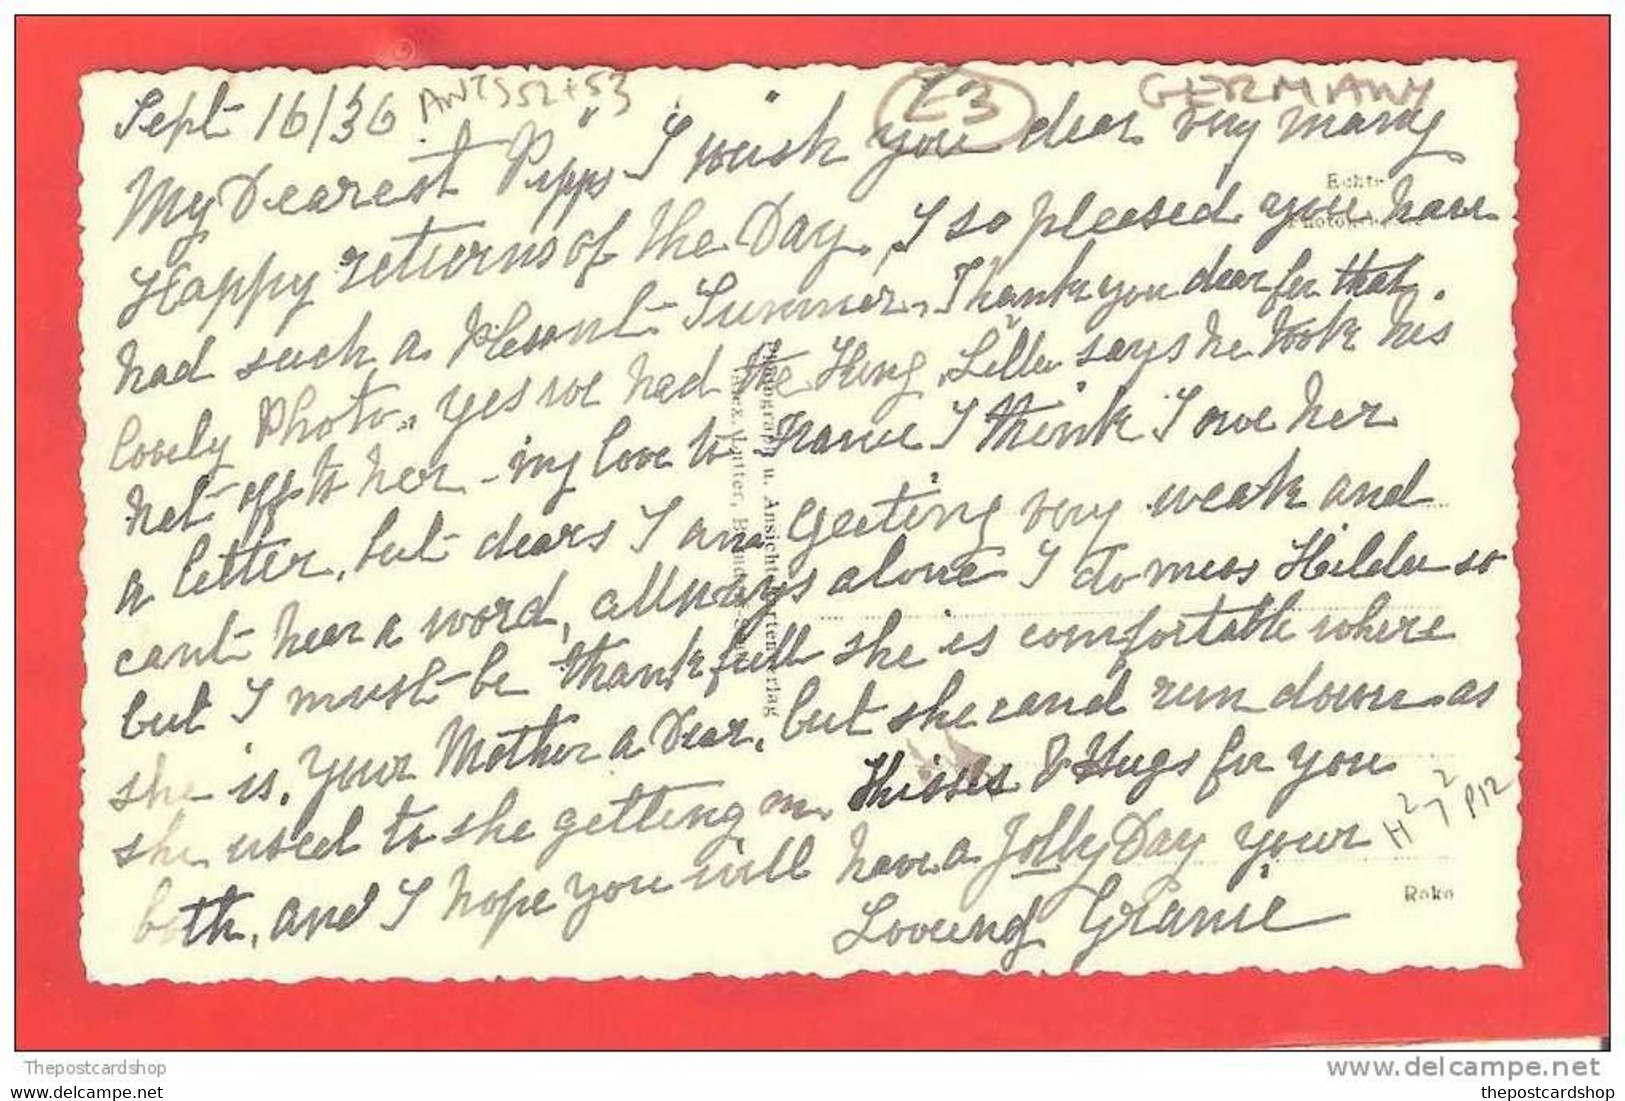 Sept 16/36 ANTS 52+53 £3 GERMANY
My Dearest Pipps I wish you dear very many
Happy returns of the Day, I so pleased you have
had such a plesant Summer, Thank you dear for that
lovely Photo, yes we had the King, Lilla says he took his
hat off to her - my love to Franie I think I owe her
a letter, but dears I am geeting very weak and
cant hear a word, allways alone I do miss Hilda so
but I must be thankfull she is comfortable where
she is. your Mother a Dear, but she and run down as
she used to she getting on. Kisses & Hugs for you
both, and I hope you will have a Jolly Day your
Loveing Granie
Echte
Photographie
Photograph u. Ansichtskartenverlag
Roko
Thepostcardshop
delcampe.net
thepostcardshop